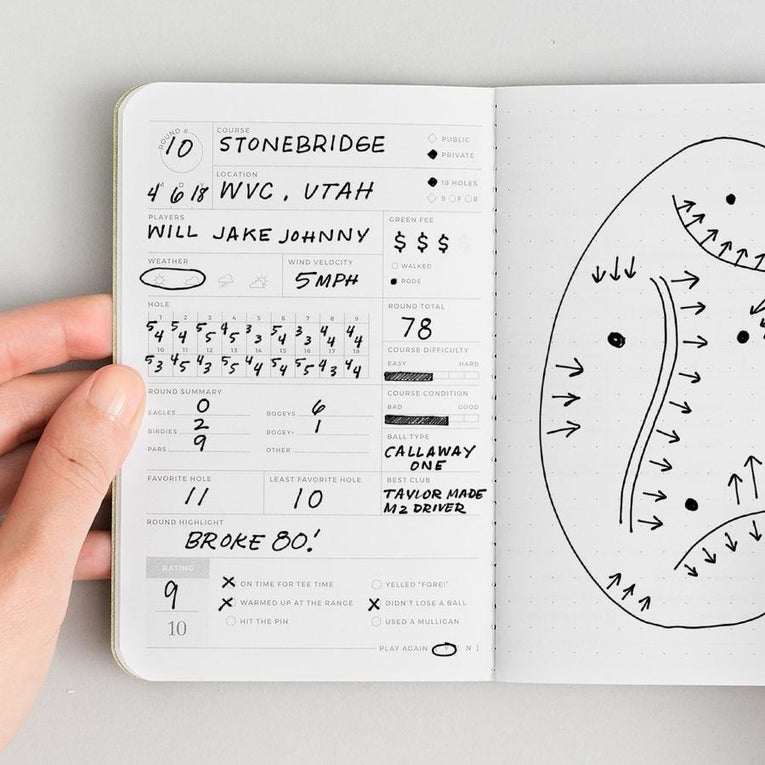 ROUND #
10
COURSE
STONEBRIDGE
PUBLIC
PRIVATE
M D Y
4 6 18
LOCATION
WVC, UTAH
18 HOLES
9 F B
PLAYERS
WILL JAKE JOHNNY
GREEN FEE
$ $ $ $
WALKED
RODE
WEATHER
WIND VELOCITY
5MPH
HOLE
1 2 3 4 5 6 7 8 9
5 4 5 4 5 5 4 5 3 3 5 4 3 3 4 4 4 4
10 11 12 13 14 15 16 17 18
5 3 4 5 4 3 5 5 4 4 5 4 5 5 4 3 4 4
ROUND TOTAL
78
COURSE DIFFICULTY
EASY HARD
ROUND SUMMARY
EAGLES 0 BOGEYS 6
BIRDIES 2 BOGEY+ 1
PARS 9 OTHER
COURSE CONDITION
BAD GOOD
BALL TYPE
CALLAWAY
ONE
FAVORITE HOLE
11
LEAST FAVORITE HOLE
10
BEST CLUB
TAYLOR MADE
M2 DRIVER
ROUND HIGHLIGHT
BROKE 80!
RATING
9
10
X ON TIME FOR TEE TIME
YELLED "FORE!"
X WARMED UP AT THE RANGE
X DIDN'T LOSE A BALL
HIT THE PIN
USED A MULLIGAN
PLAY AGAIN [ Y / N ]